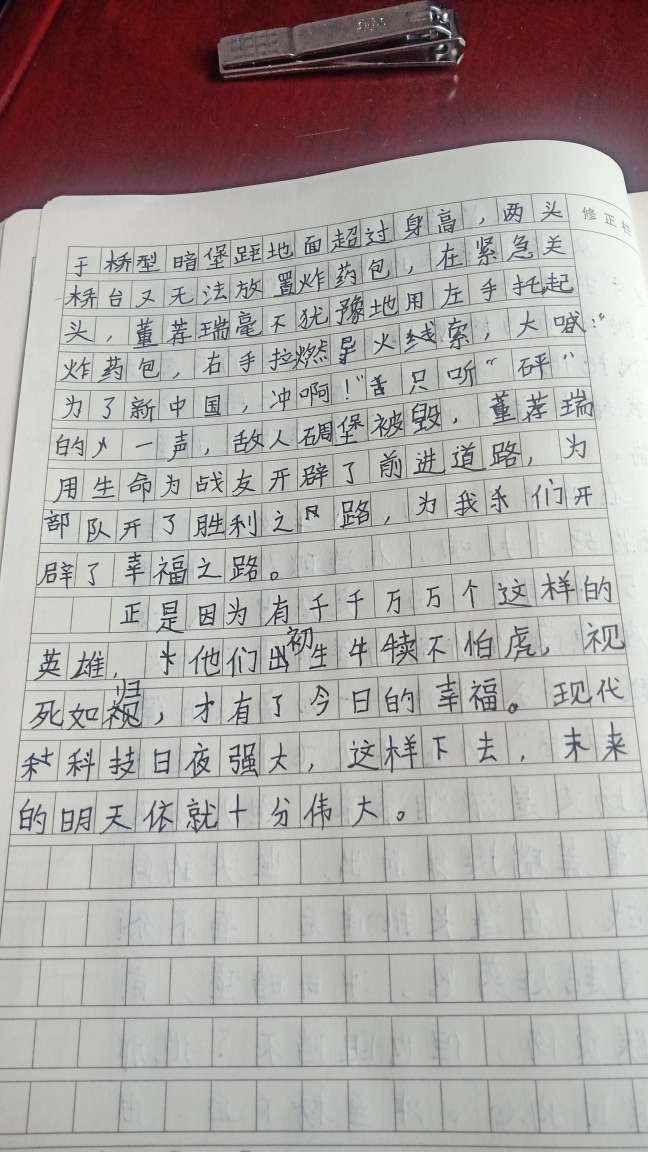 修正栏
于桥型暗堡距地面超过身高，两头
桥台又无法放置炸药包，在紧急关
头，董荐瑞毫不犹豫地用左手托起
炸药包，右手拉燃导火线索，大喊：“
为了新中国，冲啊！”只听“砰”
的一声，敌人碉堡被毁，董荐瑞
用生命为战友开辟了前进道路，为
部队开了胜利之路，为我们开
辟了幸福之路。
正是因为有千千万万个这样的
英雄，他们初生牛犊不怕虎，视
死如归，才有了今日的幸福。现代
科技日夜强大，这样下去，未来
的明天依就十分伟大。